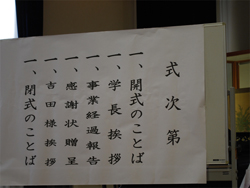 式次第
一、開式のことば
一、学長挨拶
一、事業経過報告
一、感謝状贈呈
一、吉田様挨拶
一、閉式のことば